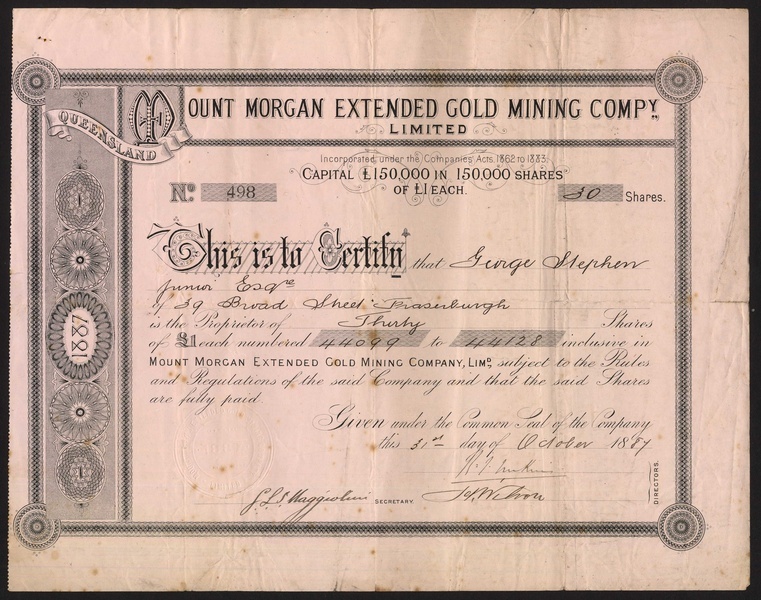 QUEENSLAND
MOUNT MORGAN EXTENDED GOLD MINING COMPY.
LIMITED
Incorporated under the Companies Acts, 1862 to 1883.
CAPITAL £150,000 IN 150,000 SHARES
OF £1 EACH.
No. 498
30 Shares.
This is to Certify that George Stephen
junior Esqre
of 39 Broad Street Fraserburgh
is the Proprietor of Thirty Shares
of £1 each numbered 44099 to 44128 inclusive in
MOUNT MORGAN EXTENDED GOLD MINING COMPANY, LIMD. subject to the Rules
and Regulations of the said Company and that the said Shares
are fully paid.
Given under the Common Seal of the Company
this 31st day of October 1887
SECRETARY.
DIRECTORS.
1
1887
1